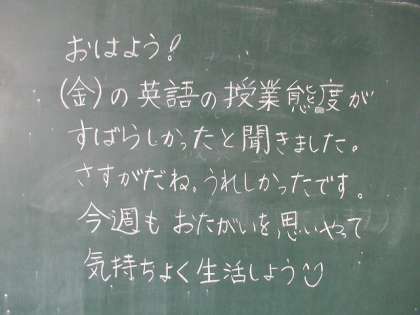 おはよう!
(金)の英語の授業態度が
すばらしかったと聞きました。
さすがだね。うれしかったです。
今週もおたがいを思いやって
気持ちよく生活しよう